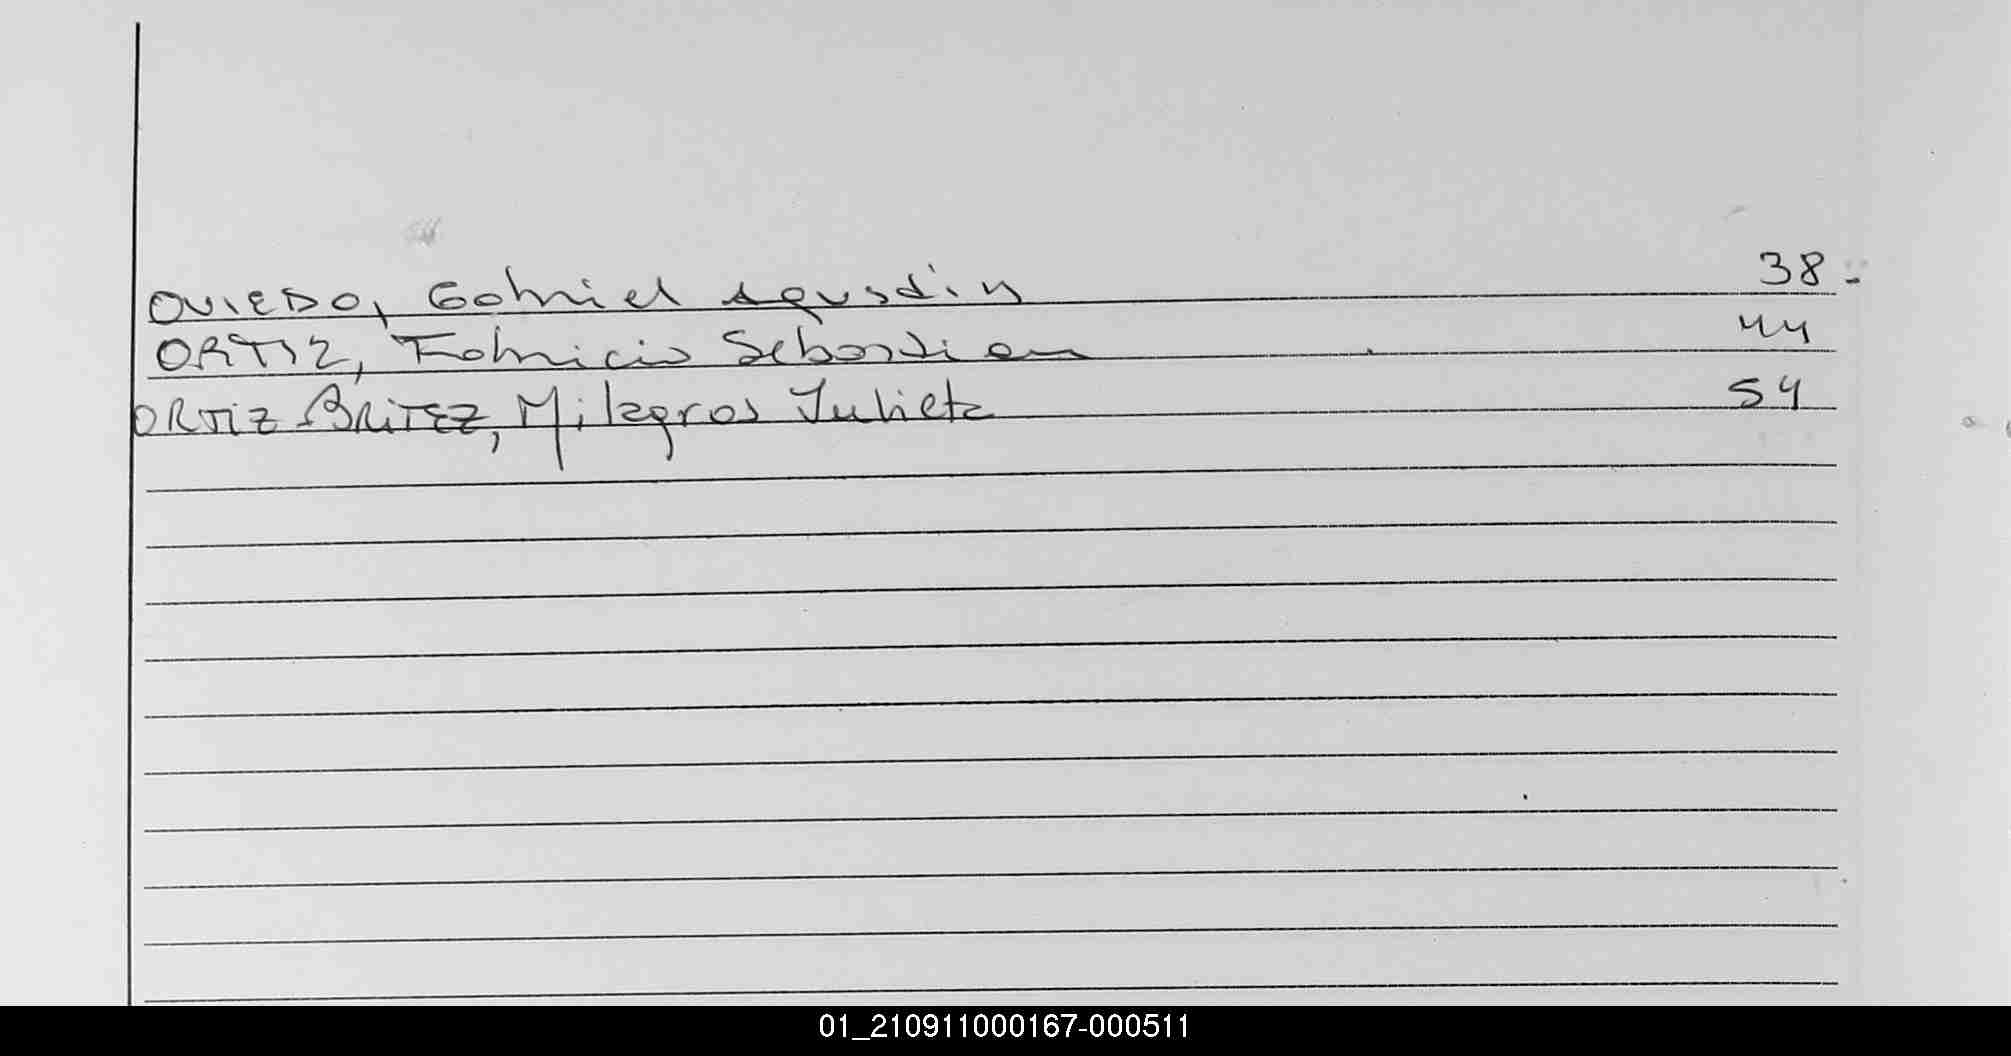 OVIEDO, Gabriel Agustin 38-
ORTIZ, Fabricio Sebastian 44
ORTIZ BRITEZ, Milagros Julieta 54
01_210911000167-000511